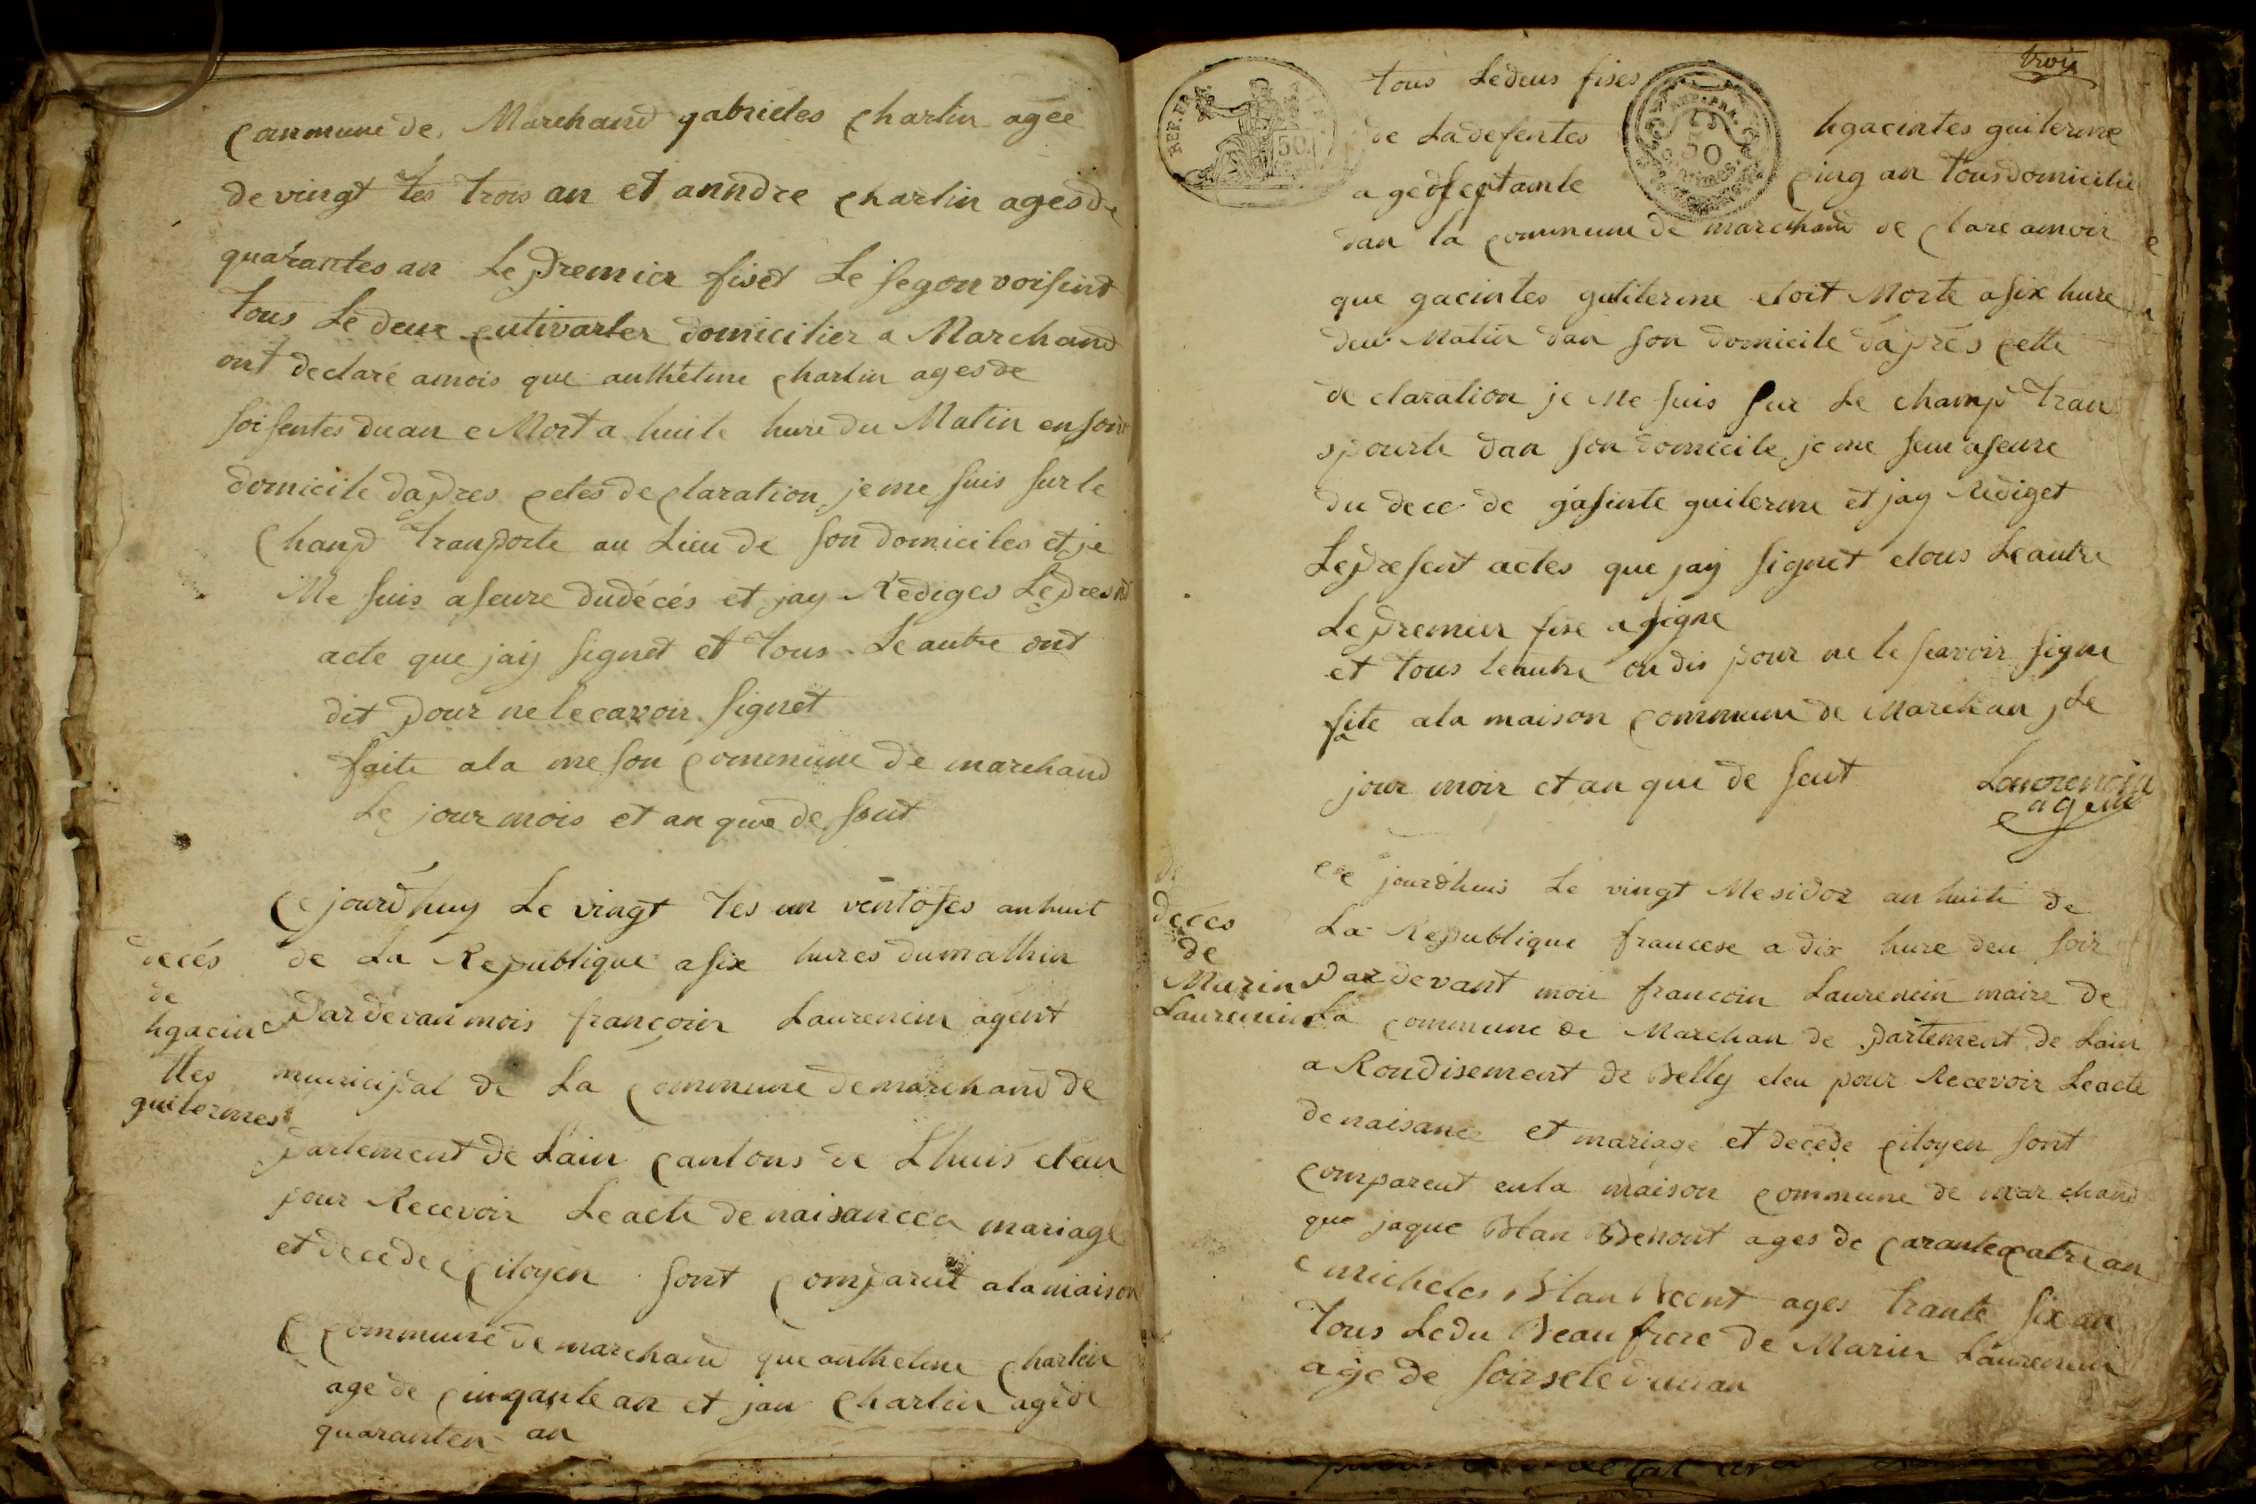 commune de Marchand gabrieles charlin agée
de vingt tes trois an et anndre charlin ages de
quarantes an Le premier fiset Le segon voisint
tous Le deux cutivarter domicilier a Marchand
ont declaré amois que anthelme charlin ages de
soisentes du an e Mort a huite hure du Matin en son
domicile dapres cetes declaration je me suis sur le
chanp tranporte au Lieu de son domiciles et je
Me suis aseure du décés et jay Rédiges Le presnt
acte que jay signet et tous Le autre ont
dit pour ne le cavoir signet
faite a la meson commune de marchand
Le jour mois et an que de sut
decés
de
hgacin
ttes
guilermes
Ce jourdhuy Le vingt tes un ventoses an huit
de La Republique a six hures du mathin
Pardevan mois francoin Laurencin agent
municipal de La commune de marchand de
partement de Lain cantons de Lhuis eleu
pour Recevoir Le acte de naisancea mariage
et decedee citoyen sont comparut a la maison
commune de marchand que anthelme charlin
age de cinqante an et jan charlin age de
quaranten an
trois
REP. FRA.
50
REP. FRA.
50
tous Le deus fises
de La defentes hgacintes guilerme
age de septante cinq an tous domicilie
dan la commune de marchand de clare amoir
que gacintes guilerme etoit Morte a six hure
deu Matin dan son domicile dáprés cette
declaration je Me suis sur Le champ tran
spourte dan son domicile je me seui aseure
du dece de gasinte guilerme et jay Rediget
Le present actes que jay signet e tous Le autre
Le premier fise a signe
et tous le autre on dis pour ne le scavoir signe
faite a la maison commune de Marchan Le
jour moir et an que de seut
Laurencin
agent
decés
de
Marin
Laurencin
Ce jourdhuis Le vingt Mesidor an huite de
La Republique francese a dix hure deu soir
Par devant moii francoin Laurencin maire de
La commune de Marchan de partement de Lain
a Rondisement de Belley eleu pour Recevoir Le acte
de naisance et mariage et decede citoyen sont
comparent en la maison commune de marchand
que jaque Blan Benont ages de carante catre an
e micheles Blan ages trante six an
Tous Le du Beau frere de Marin Laurencin
age de soisete du an